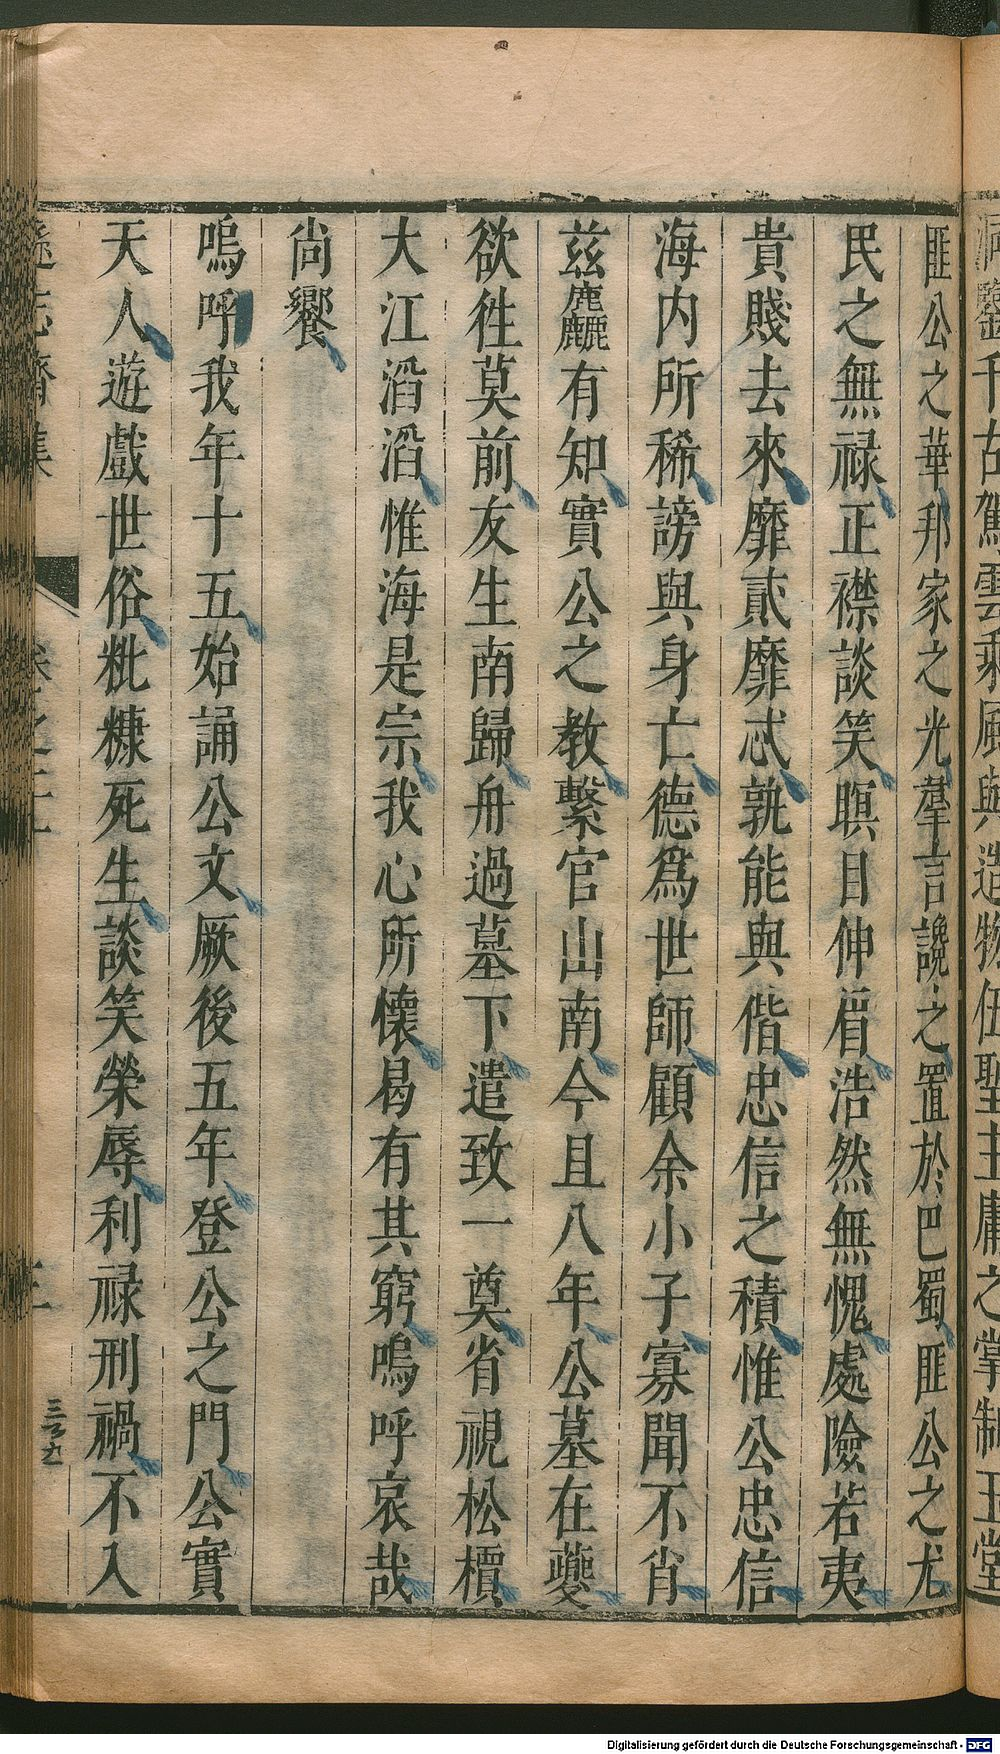 洞鑒千古駕雲乘風與造物伍聖主庸之掌制玉堂
匪公之華邦家之光羣言讒之置於巴蜀匪公之尤
民之無禄正襟談笑暝目伸眉浩然無愧處險若夷
貴賤去來靡貳靡忒孰能與偕忠信之積惟公忠信
海内所稀謗與身亡德爲世師顧余小子寡聞不肖
兹麤有知實公之教繫官山南今且八年公墓在夔
欲徃莫前友生南歸舟過墓下遣致一奠省視松檟
大江滔滔惟海是宗我心所懷曷有其窮嗚呼哀哉
尚饗
嗚呼我年十五始誦公文厥後五年登公之門公實
天人遊戲世俗粃糠死生談笑榮辱利禄刑禍不入
遜志齋集
Digitalisierung gefördert durch die Deutsche Forschungsgemeinschaft - DFG